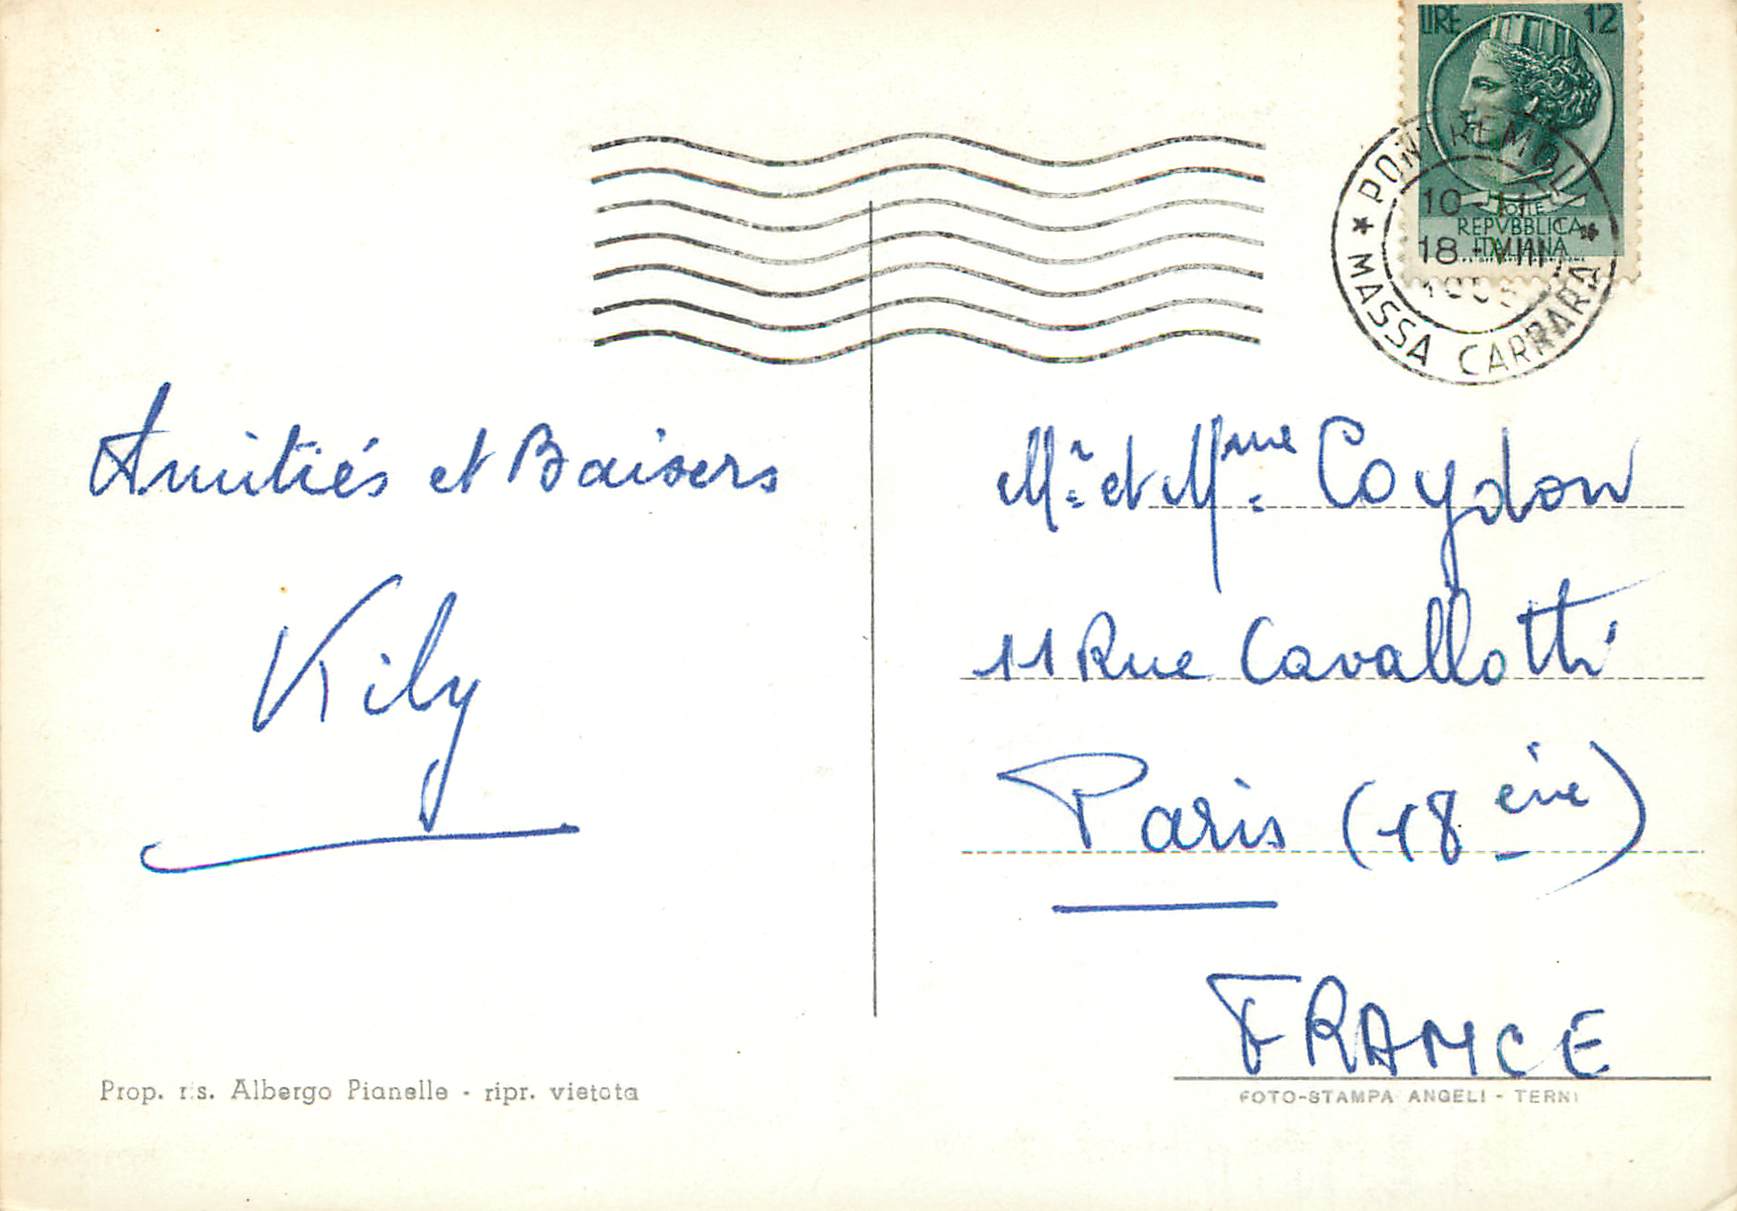 LIRE 12
POSTE
REPVBBLICA
ITALIANA
PONTREMOLI
10-11
18-VIII
* MASSA CARRARA *
Amitiés et Baisers
Kily
Mr et Mme Coydon
11 Rue Cavallotti
Paris (18 ème)
FRANCE
Prop. ris. Albergo Pianelle - ripr. vietata
FOTO-STAMPA ANGELI - TERNI